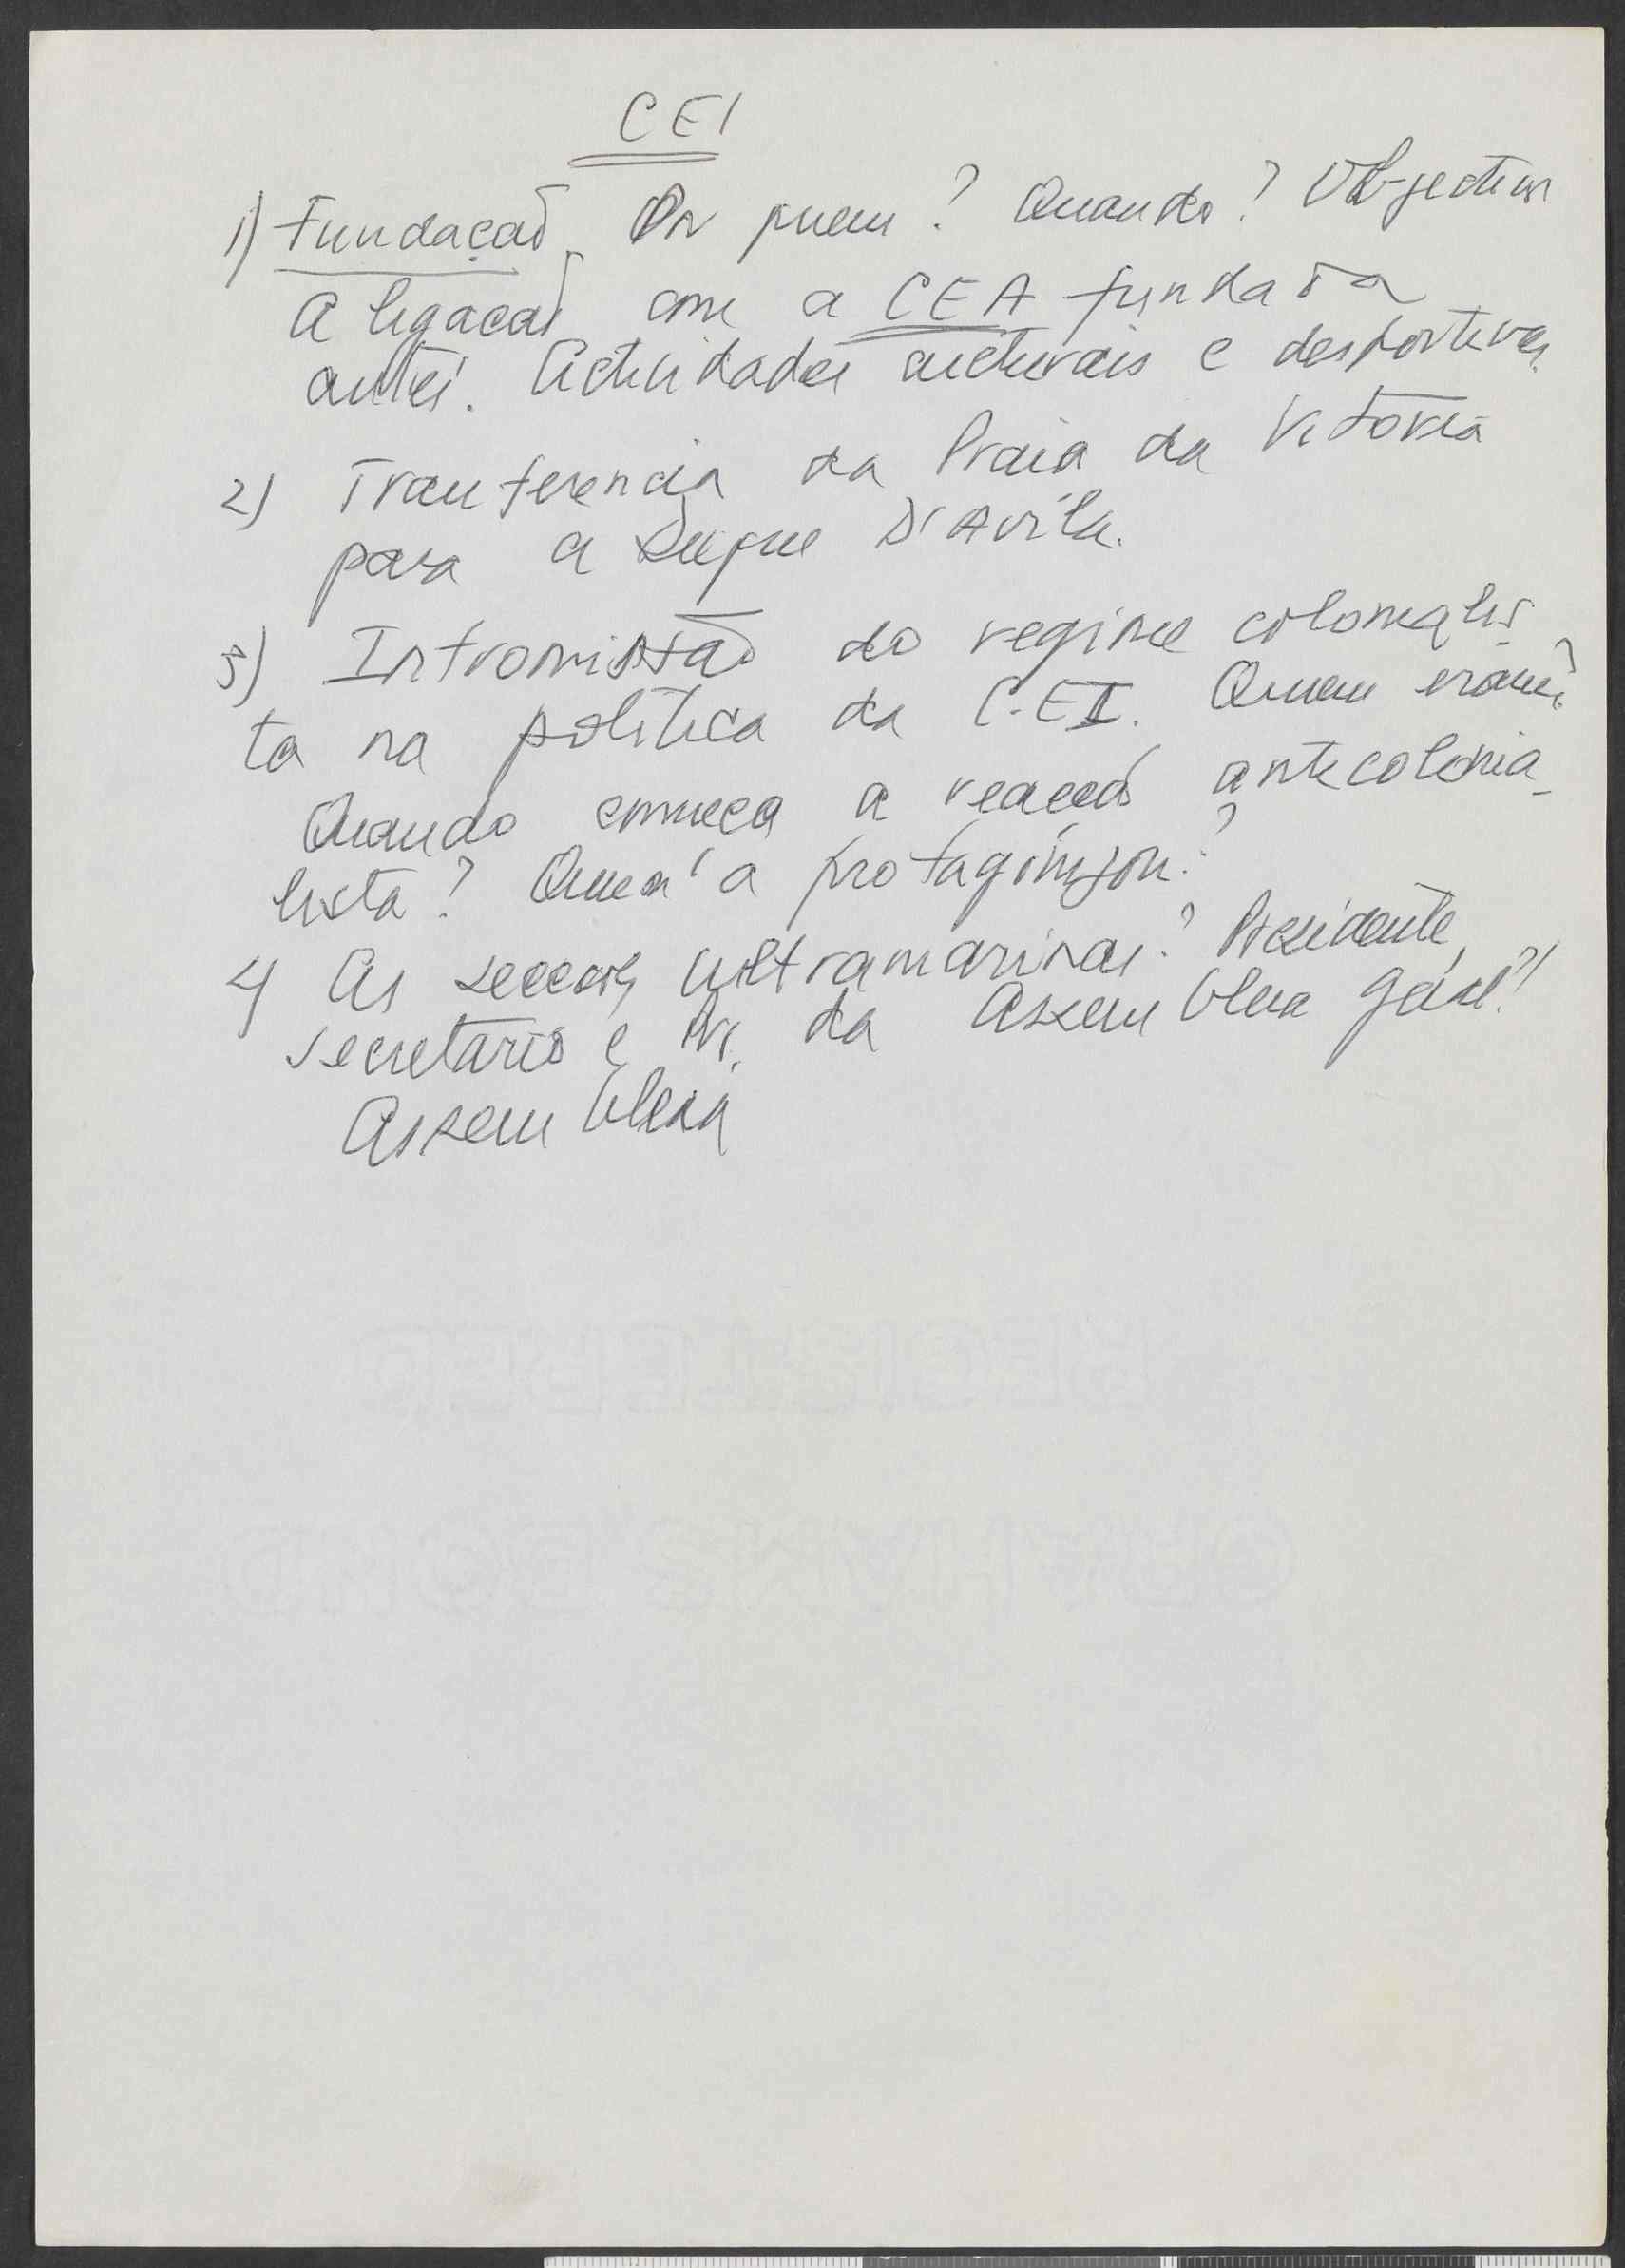 CEI
1) Fundação. Por quem? Quando? Objectivos
A ligação com a CEA fundada
antes. Actividades culturais e desportivas.
2) Tranferencia da Praia da Vitória
para a Duque D'Avila.
3) Intromissão do regime colonialis-
ta na politica da C.E.I. Quem eram?
Quando começa a reacção anticolonia-
lista? Quem a protagonizou?
4) As secções ultramarinas? Presidente,
secretário e Pr. da Assembleia Geral?
Assembleia